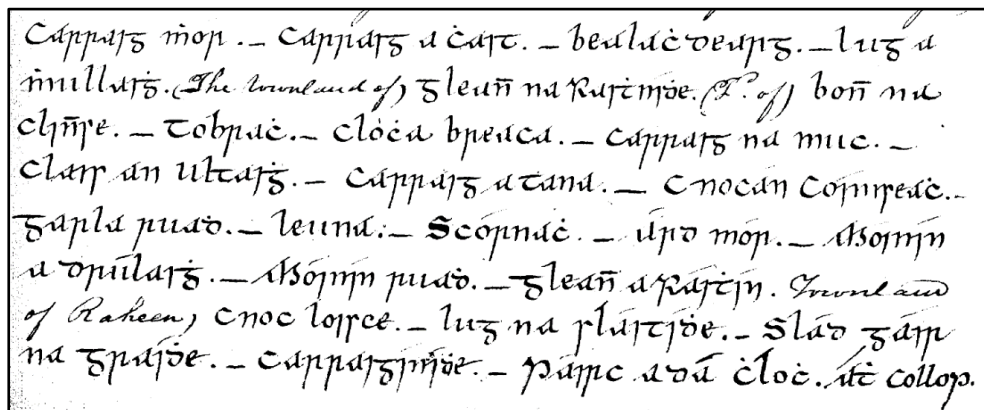 Carraig ṁór. – Carraig a ċait. – bealaċ dearg. – lug a
ṁullaiġ. (The townland of) Gleann na Raitiniḋe. (T. of) bonn na
cluinse. – Tobraċ. – Clóċa breaca. – Carraig na muc. –
Clais an Ultaiġ. – Carraig a tana. – Cnocán Coiniseaċ. –
garla ruaḋ. – leuna. – Scórnaċ. – árd mór. – Móinín
a driúlaiġ. – Móinín ruaḋ. – Gleann a Raiṫín. Townland
of Raheen, Cnoc loisce. – lug na slaitiḋe. – Slad gairr
na graiḋe. – Carraiginiḋe. – Páirc a dá ċloċ. áṫ collop.